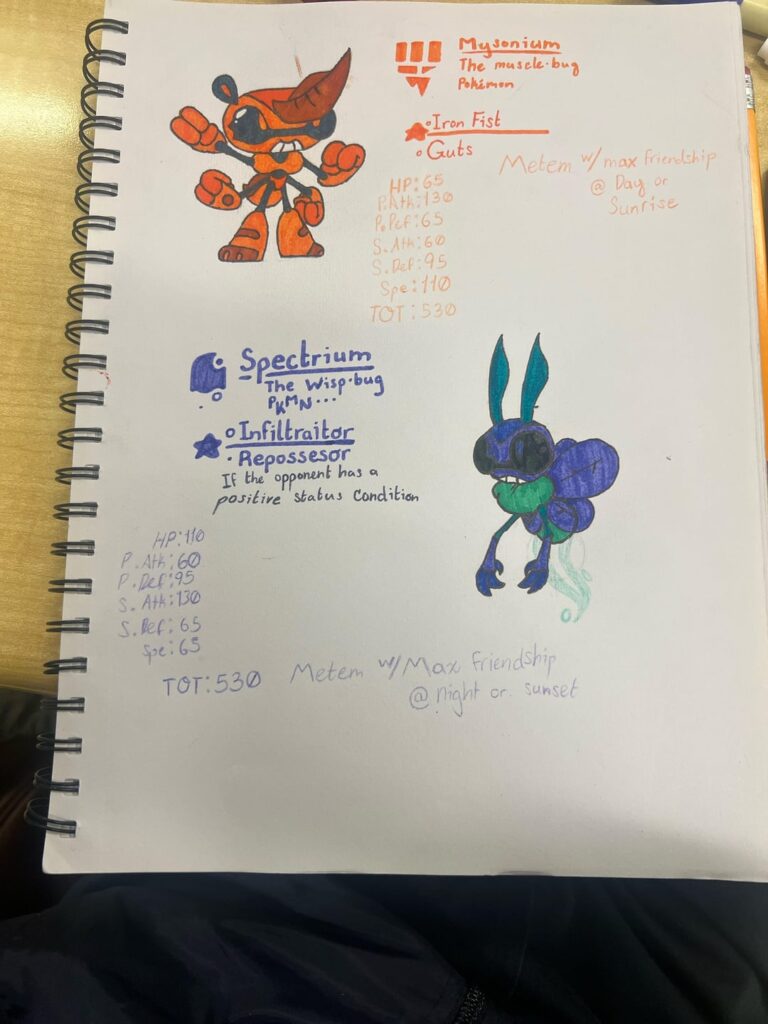 Mysonium
The muscle-bug
Pokémon
Iron Fist
Guts
Metem w/ max friendship
@ Day or
Sunrise
HP:65
P.Atk:130
P.Def:65
S.Atk:60
S.Def:95
Spe:110
TOT:530
Spectrium
The Wisp-bug
PKMN...
Infiltraitor
Repossesor
If the opponent has a
positive status condition
HP:110
P.Atk:60
P.Def:95
S.Atk:130
S.Def:65
Spe:65
TOT:530
Metem w/Max friendship
@ night or sunset